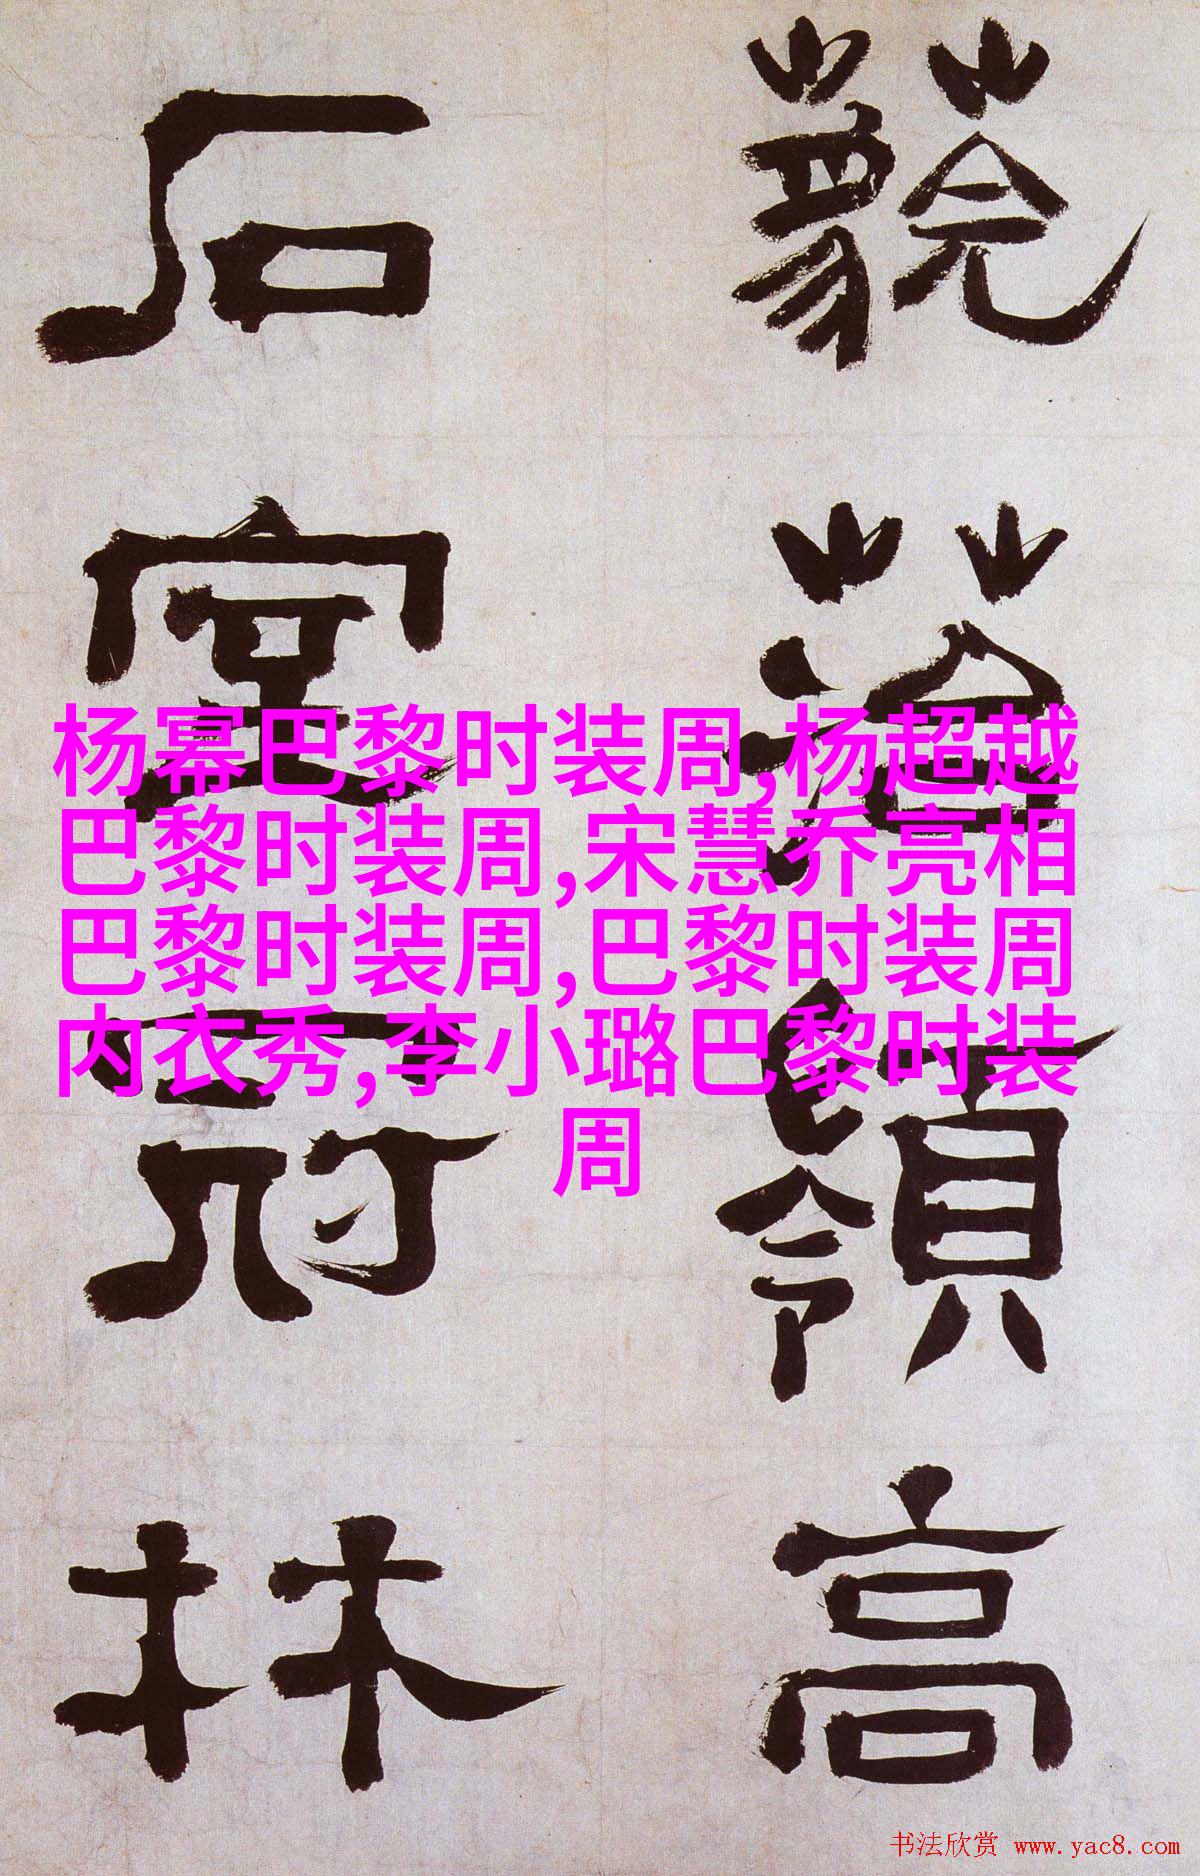 藐蒞嶺高
石室可林
杨幂巴黎时装周,杨超越
巴黎时装周,宋慧乔亮相
巴黎时装周,巴黎时装周
内衣秀,李小璐巴黎时装
周
书法欣赏 www.yac8.com